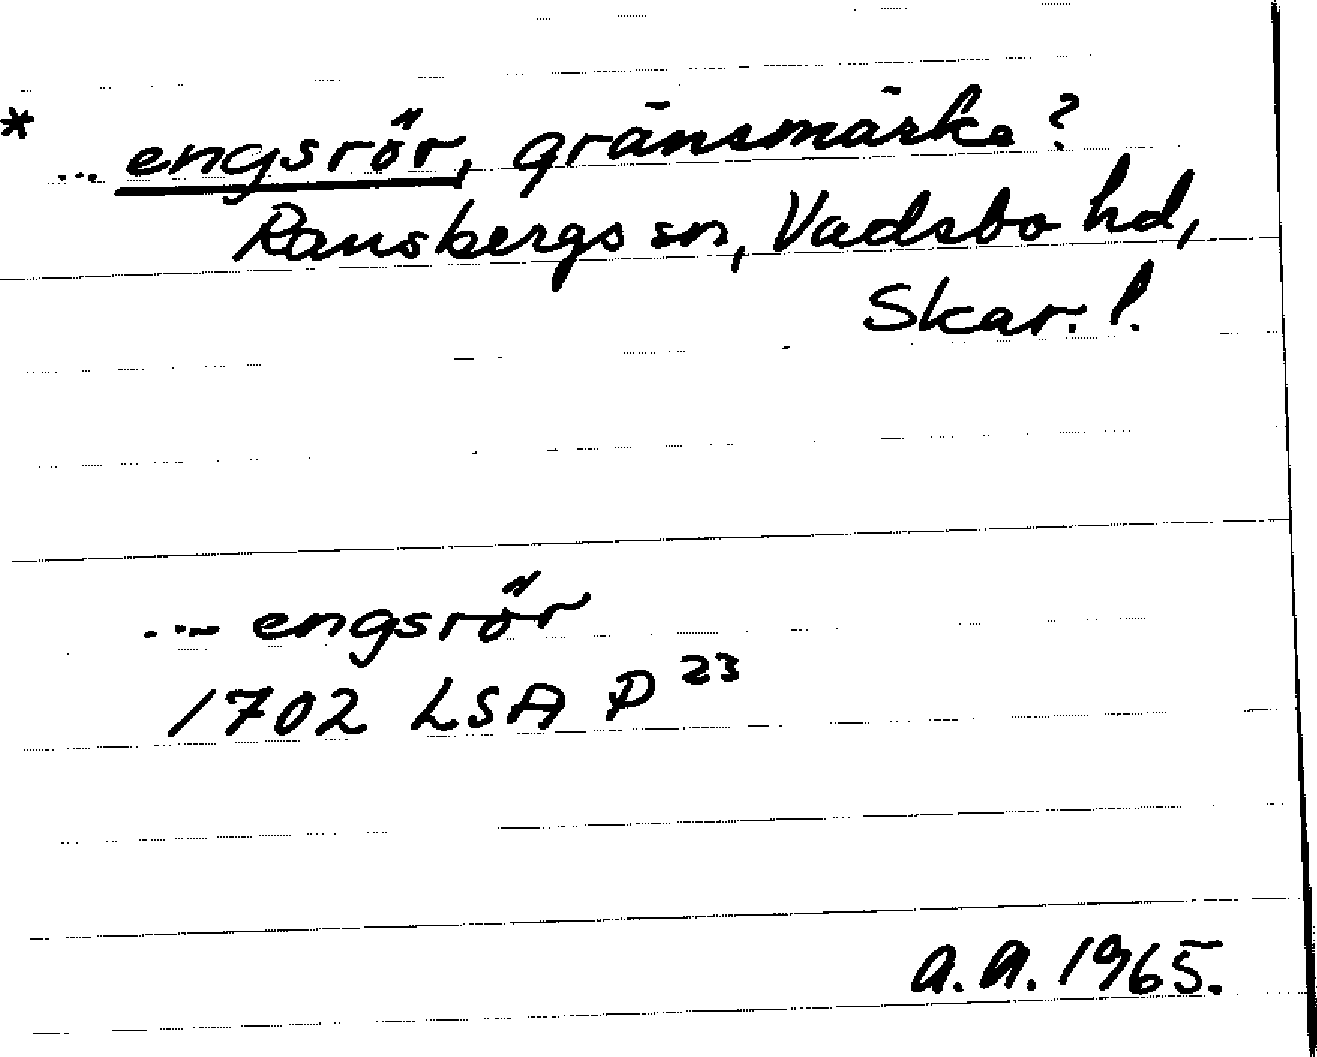 * ... engsrör, gränsmärke?
Ransbergs sn, Vadsbo hd,
Skar. l.
... engsrör
1702 LSA P 23
a.a. 1965.